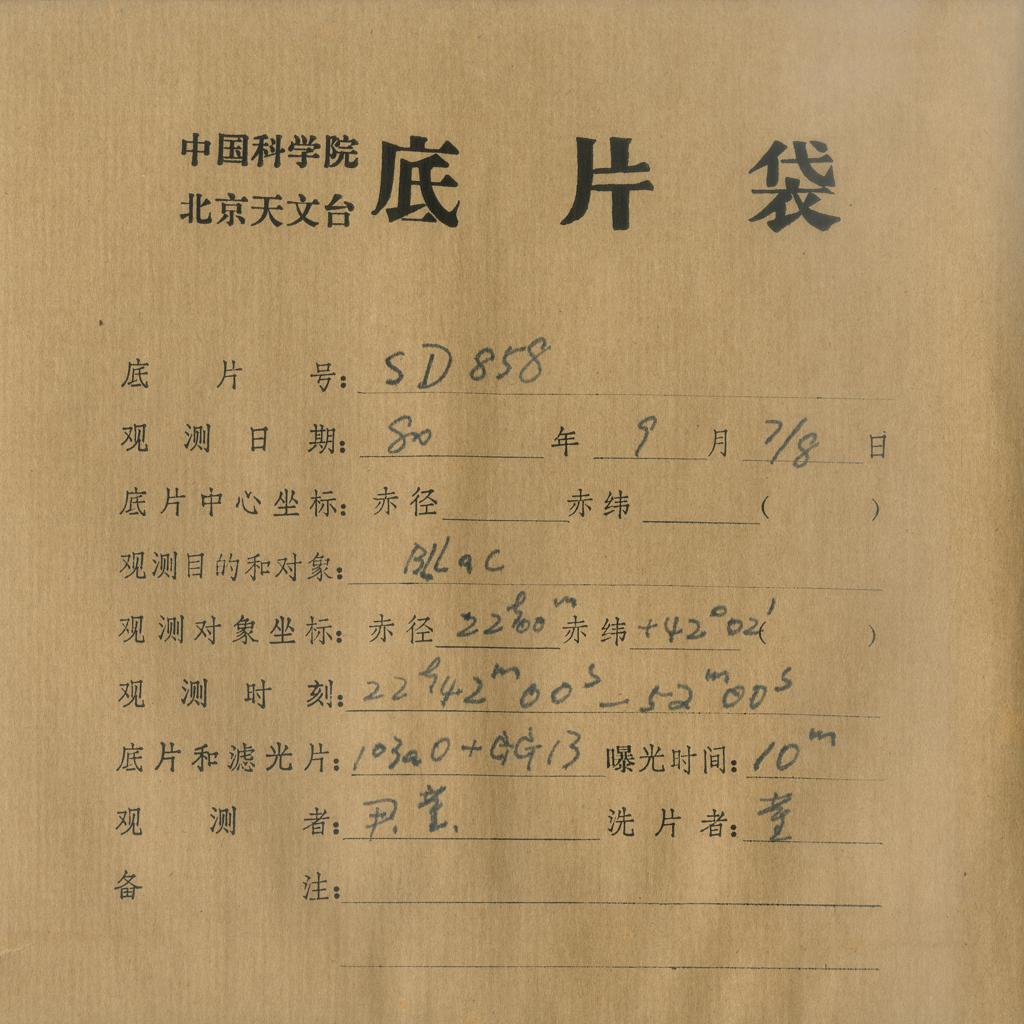 中国科学院
北京天文台
底片袋
底片号: SD 858
观测日期: 80 年 9 月 7/8 日
底片中心坐标: 赤径 赤纬 ( )
观测目的和对象: BLLac
观测对象坐标: 赤径 22h00m 赤纬 +42°02' ( )
观测时刻: 22h42m00s — 52m00s
底片和滤光片: 103aO+GG13 曝光时间: 10m
观测者: 尹.
洗片者:
备注: